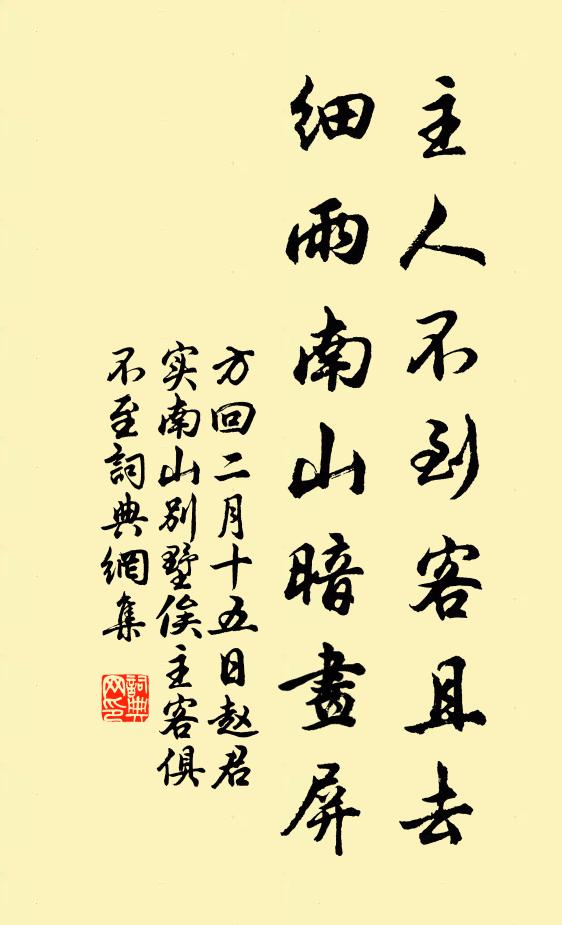 主人不到客且去
細雨南山暗畫屏
方回二月十五日赵君
实南山别墅俟主客俱
不至詞典網集
詞典
网印